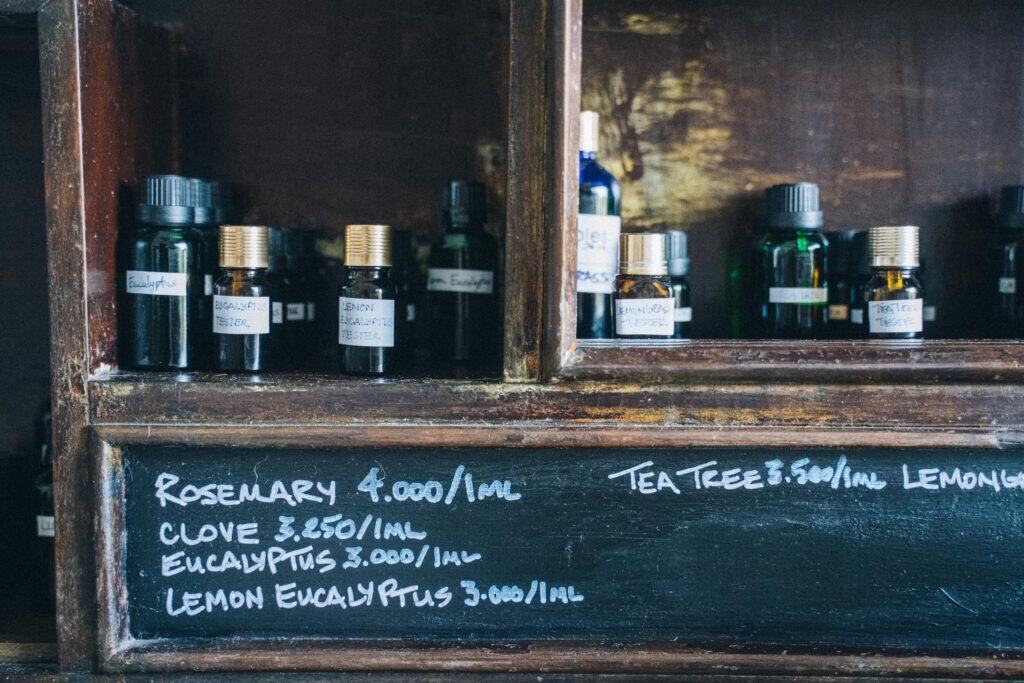 Eucalyptus
EUCALYPTUS
TESTER
LEMON
EUCALYPTUS
TESTER
Eucalyptus
LEMONGRASS
TESTER
TEA TREE
TESTER
ROSEMARY 4.000/1ML
CLOVE 3.250/1ML
EUCALYPTUS 3.000/1ML
LEMON EUCALYPTUS 3.000/1ML
TEA TREE 3.500/1ML LEMONG